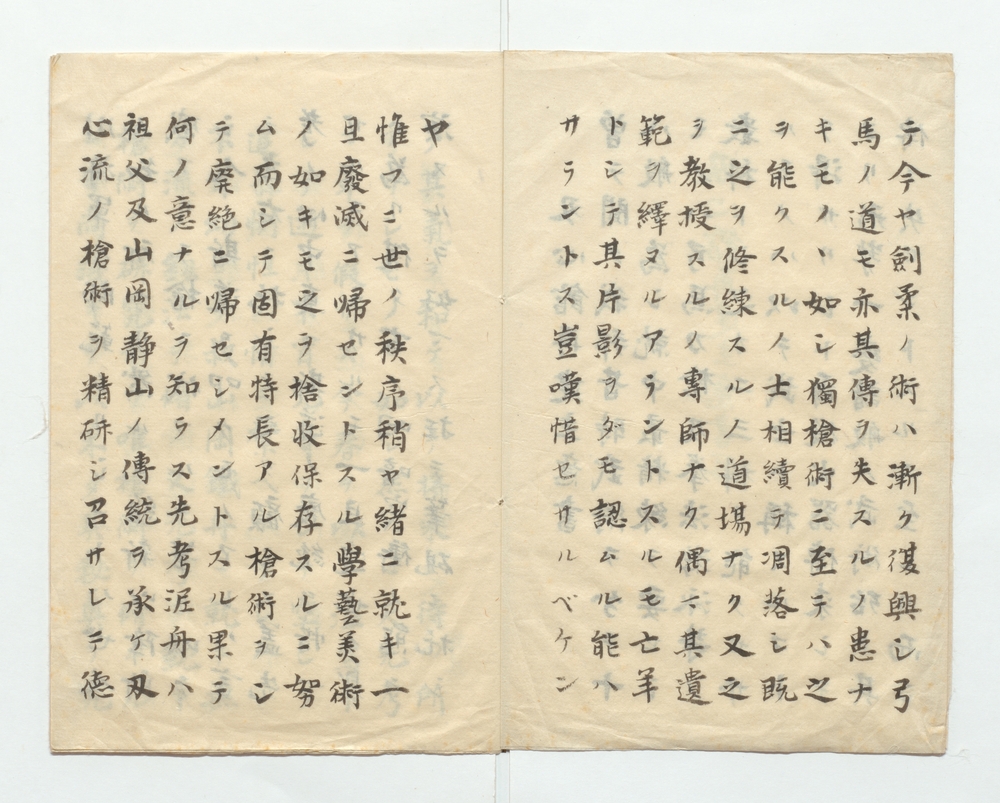 テ今ヤ劍柔ノ術ハ漸ク復興シ弓
馬ノ道モ亦其傳ヲ失スルノ患ナ
キモノヽ如シ獨槍術ニ至テハ之
ヲ能クスルノ士相續テ凋落シ既
ニ之ヲ修練スルノ道場ナク又之
ヲ教授スルノ專師ナク偶〻其遺
範ヲ繹ヌルアラントスルモ亡羊
トシテ其片影ヲダモ認ムル能ハ
サラントス豈嘆惜セサルベケン
ヤ
惟フニ世ノ秩序稍ヤ緒ニ就キ一
旦廢滅ニ帰セントスル學藝美術
ノ如キモ之ヲ捨收保存スルニ努
ム而シテ固有特長アル槍術ヲシ
テ廃絶ニ帰セシメントスル果テ
何ノ意ナルヲ知ラス先考泥舟ハ
祖父及山岡靜山ノ傳統ヲ承ケ刃
心流ノ槍術ヲ精硏シ召サレテ德